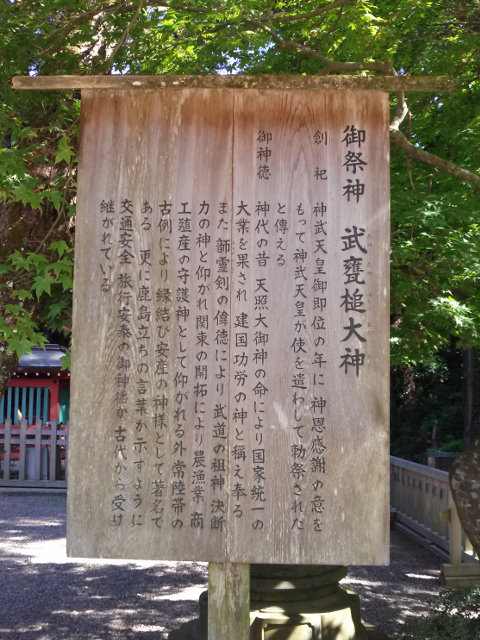 御祭神 武甕槌大神
創祀 神武天皇御即位の年に 神恩感謝の意を
もって神武天皇が使を遣わして勅祭された
と傳える
御神徳 神代の昔 天照大御神の命により国家統一の
大業を果され 建国功労の神と稱え奉る
また 韴霊剣の偉徳により 武道の祖神 決断
力の神と仰がれ 関東の開拓により 農漁業 商
工殖産の守護神として仰がれる外 常陸帯の
古例により 縁結び安産の神様として著名で
ある 更に鹿島立ちの言葉が示すように
交通安全 旅行安泰の御神徳が古代から受け
継がれている